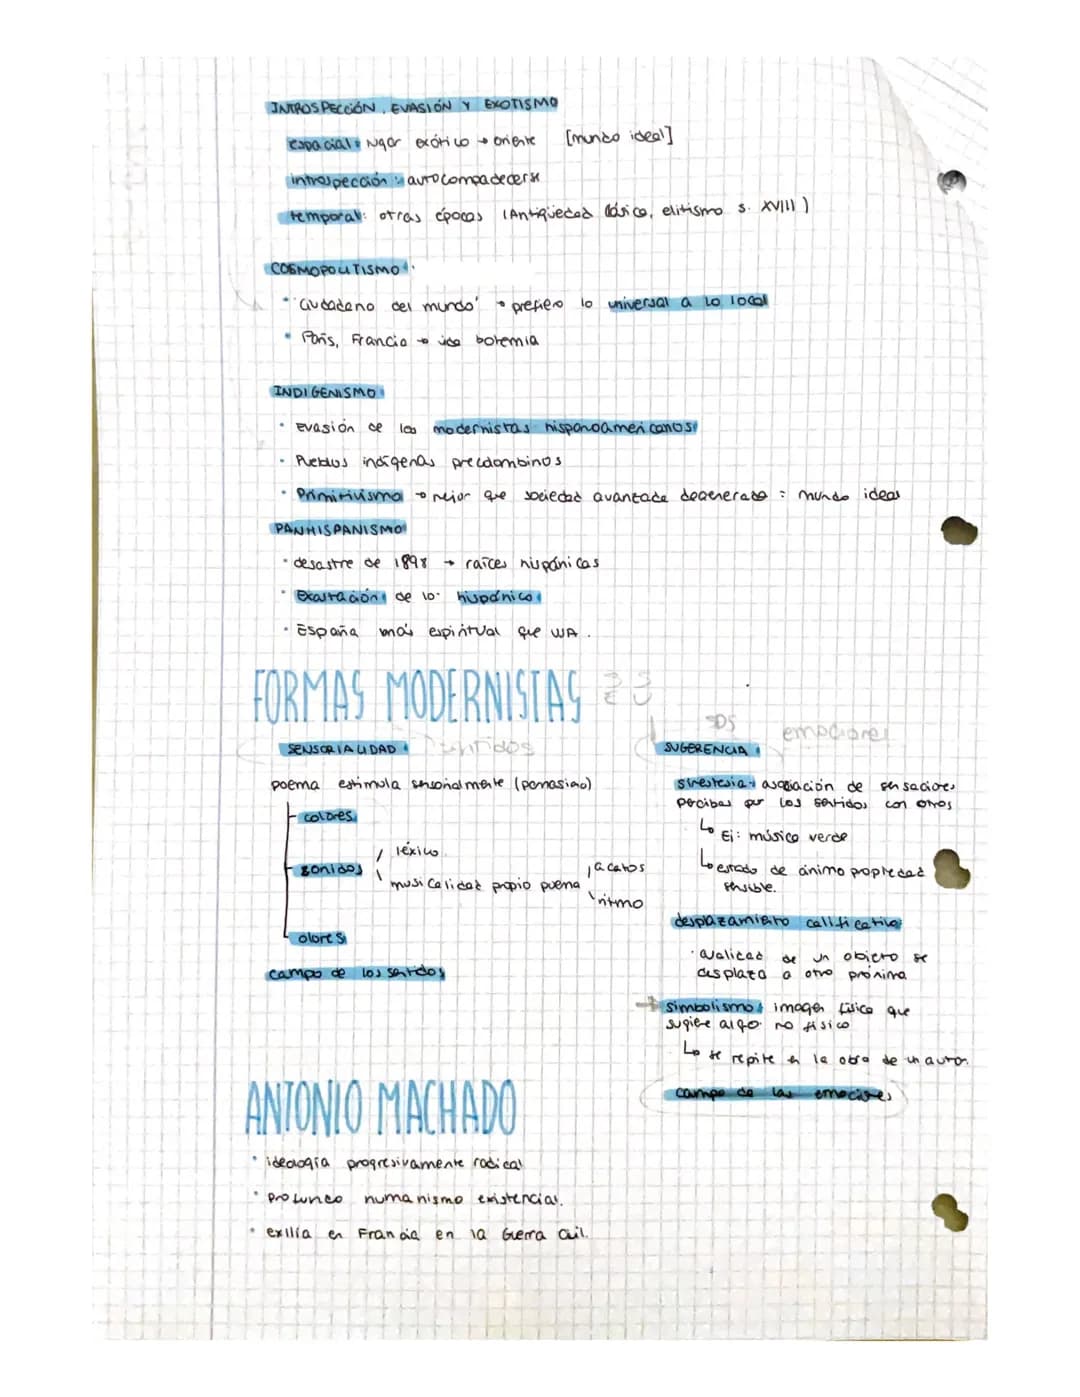 INTROSPECCIÓN, EVASIÓN Y EXOTISMO
espacial: lugar exótico → oriente [mundo ideal]
introspección: autocompadecerse
temporal: otras épocas (Antigüedad clásica, elitismo s. XVIII)
COSMOPOLITISMO:
• 'Ciudadano del mundo' → prefiero lo universal a lo local
• París, Francia → vida bohemia
INDIGENISMO
• Evasión de los modernistas hispanoamericanos
• Pueblos indígenas precolombinos
• Primitivismo → mejor que sociedad avanzada degenerada = mundo ideal
PANHISPANISMO
• desastre de 1898 → raíces hispánicas
• Exaltación de lo hispánico
• España más espiritual que USA.
FORMAS MODERNISTAS
SENSORIALIDAD sentidos
poema estimula sensorialmente (parnasiano)
colores
sonidos
léxico
musicalidad propio poema
acentos
ritmo
olores
campo de los sentidos
SDS emociones
SUGERENCIA
sinestesia: asociación de sensaciones
percibas por los sentidos con otros
↳ Ej: música verde
↳ estado de ánimo propiedad
sensible.
desplazamiento calificativo:
· cualidad de un objeto se
desplaza a otro próxima
→ simbolismo: imagen física que
sugiere algo no físico
↳ se repite en la obra de un autor.
campo de las emociones
ANTONIO MACHADO
• ideología progresivamente radical
• profundo humanismo existencial.
• exilia en Francia en la Guerra Civil.